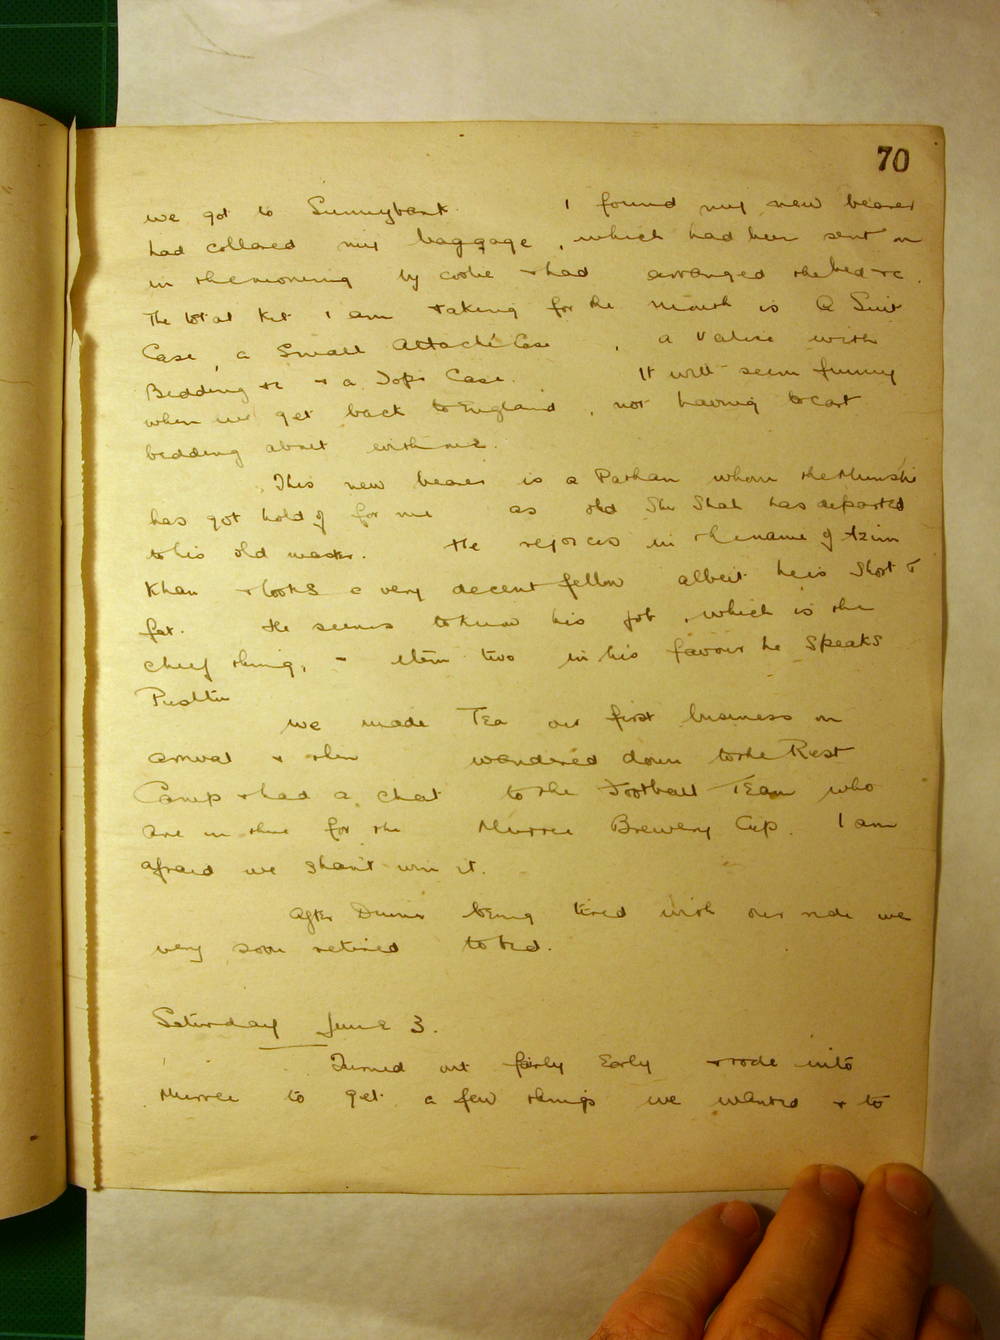 70
we got to Sunnybank. I found my new bearer
had collared my baggage, which had been sent on
in the morning by coolie & had arranged the bed &c.
The total kit I am taking for the month is a Suit
Case, a Small Attaché Case, a Valise with
Bedding &c & a Topi Case. It will seem funny
when we get back to England, not having to cart
bedding about with me.
This new bearer is a Pathan whom the Munshi
has got hold of for me as old Sher Shah has departed
to his old master. He rejoices in the name of Azim
Khan & looks a very decent fellow albeit he is Short &
fat. He seems to know his job, which is the
chief thing, - item two in his favour he speaks
Pushtu
We made Tea our first business on
arrival & then wandered down to the Rest
Camp & had a chat to the Football Team who
are in there for the Murree Brewery Cup. I am
afraid we shan't win it.
After Dinner being tired with our ride we
very soon retired to bed.
Saturday June 3.
Turned out fairly Early & rode into
Murree to get a few things we wanted & to